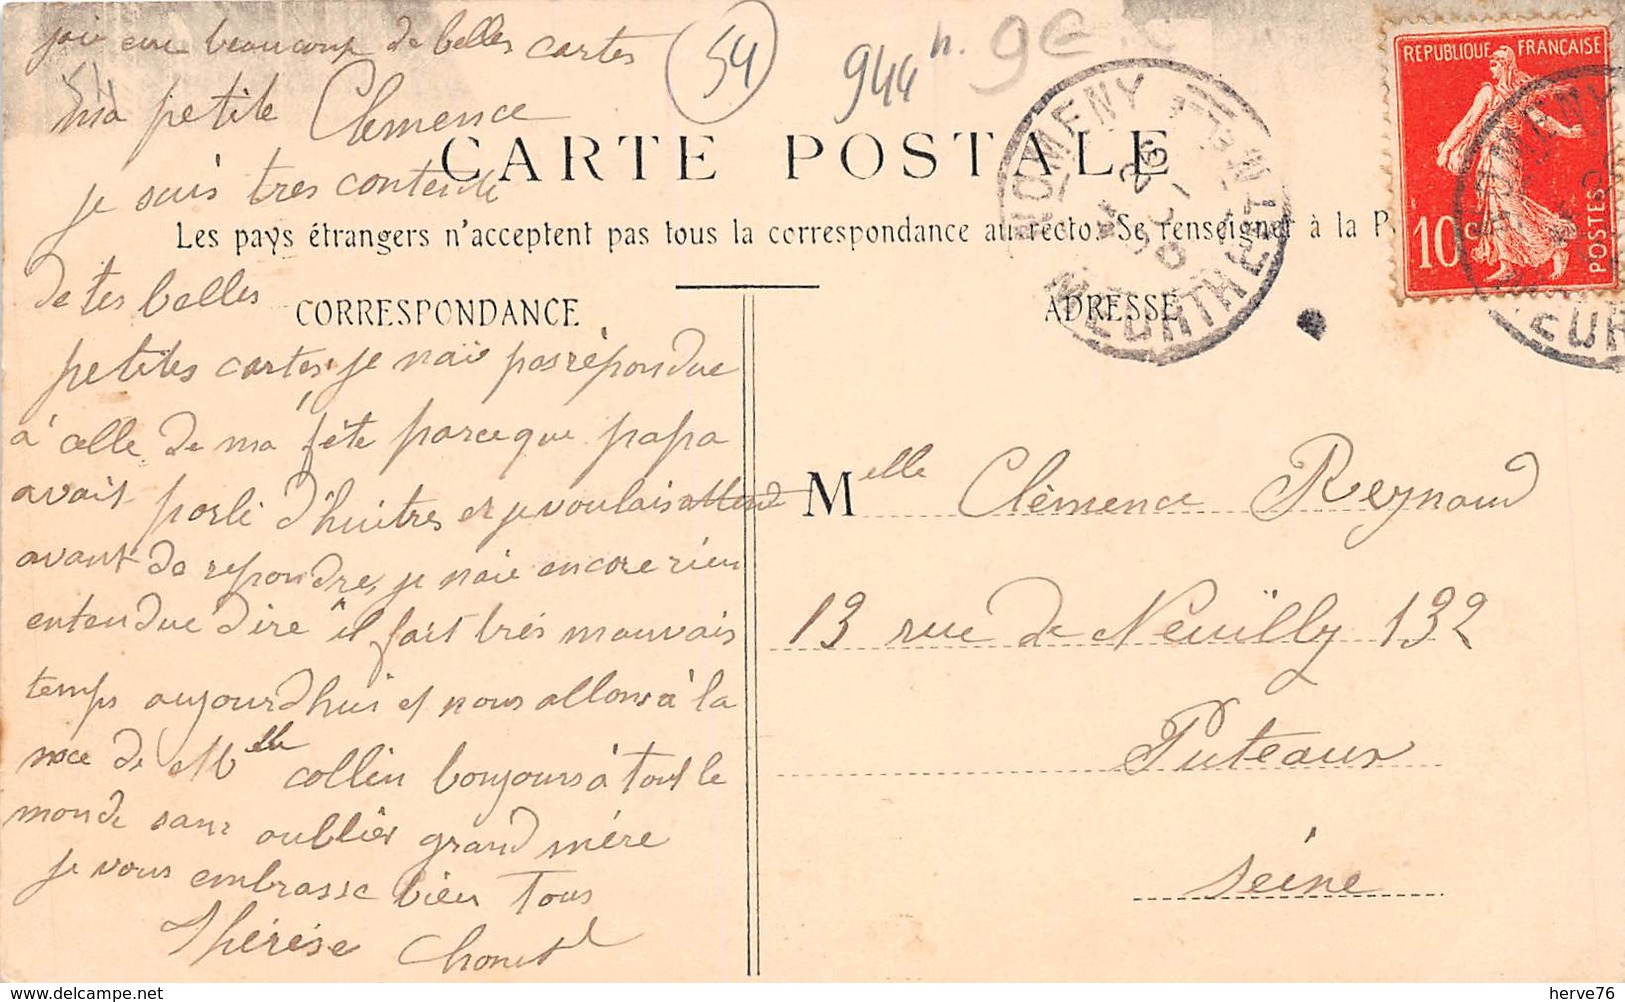 jaie eue beaucoup de belles cartes
54
944 h. 9e
54
ma petite Clemence
CARTE POSTALE
je suis tres contente
Les pays étrangers n'acceptent pas tous la correspondance au recto. Se renseigner à la P
de tes belles
CORRESPONDANCE
ADRESSE
petites cartes je naie pas répondue
à celle de ma fête parceque papa
avait parlé d'huitres et je voulais attend
avant de repondre, je naie encore rien
entendue dire il fait trés mauvais
temps aujourdhui et nous allons à la
noce de Melle collin bonjours à tout le
monde sans oublier grand mére
je vous embrasse bien Tous
Thérèse Chonet
Melle Clèmence Reynaud
13 rue de Neuilly 132
Puteaux
Seine
REPUBLIQUE FRANÇAISE
10 c
POSTES
NOMENY
MEURTHE-ET-M
NOMENY
MEUR
herve76